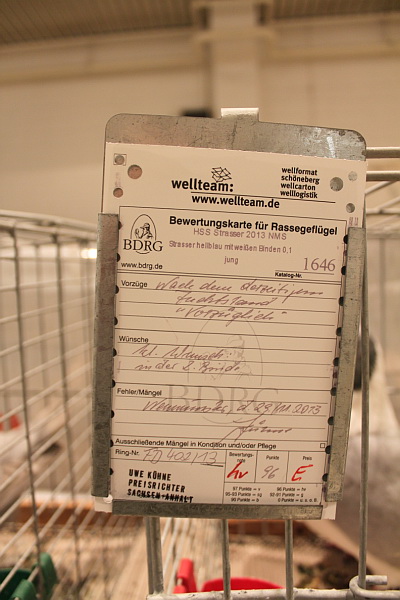 wellteam:
www.wellteam.de
wellformat
schöneberg
wellcarton
welllogistik
BDRG
www.bdrg.de
Bewertungskarte für Rassegeflügel
HSS Strasser 2013 NMS
Strasser hellblau mit weißen Binden 0,1
jung
1646
Katalog-Nr.
Vorzüge
Nach dem derzeitigen
Zuchtstand
"Vorzüglich"
Wünsche
kl. Wunsch:
in der 2. Binde
Fehler/Mängel
d. 2013
Ausschließende Mängel in Kondition und/oder Pflege
Ring-Nr. 402/13
Bewertungsnote
hv
Punkte
96
Preis
E
UWE KÜHNE
PREISRICHTER
SACHSEN-ANHALT
97 Punkte = v
96 Punkte = hv
93-95 Punkte = sg
92-91 Punkte = g
90 Punkte = b
0 Punkte = u, o. u. ä.